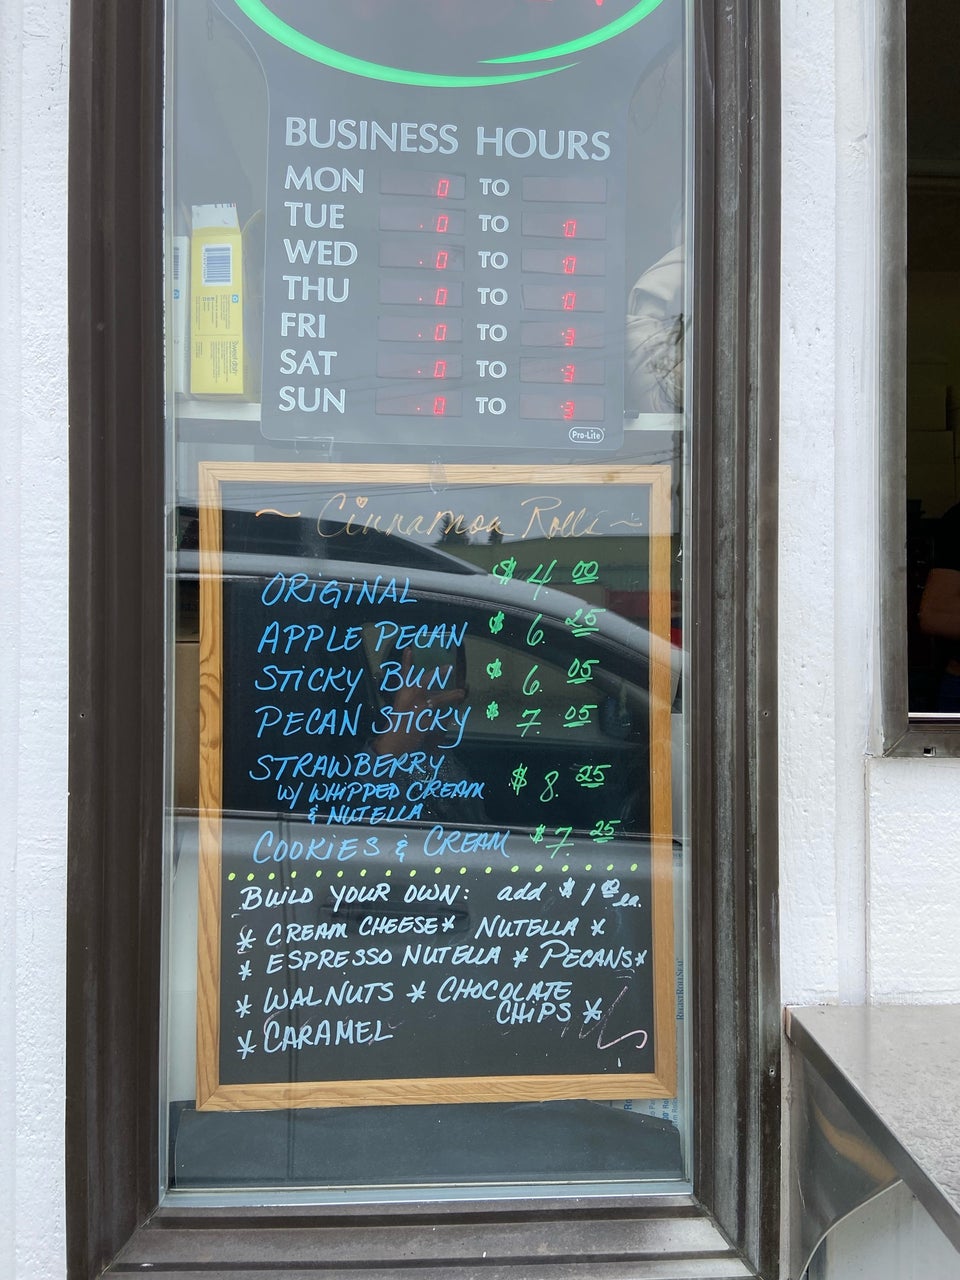 BUSINESS HOURS
MON 0 TO
TUE 0 TO 0
WED 0 TO 0
THU 0 TO 0
FRI 0 TO 3
SAT 0 TO 3
SUN 0 TO 3
Pro-Lite
~ Cinnamon Rolls ~
ORIGINAL $4.00
APPLE PECAN $6.25
STICKY BUN $6.05
PECAN STICKY $7.05
STRAWBERRY
W/ WHIPPED CREAM $8.25
& NUTELLA
COOKIES & CREAM $7.25
BUILD YOUR OWN: add $1.00 ea.
* CREAM CHEESE * NUTELLA *
* ESPRESSO NUTELLA * PECANS *
* WALNUTS * CHOCOLATE
CHIPS *
* CARAMEL